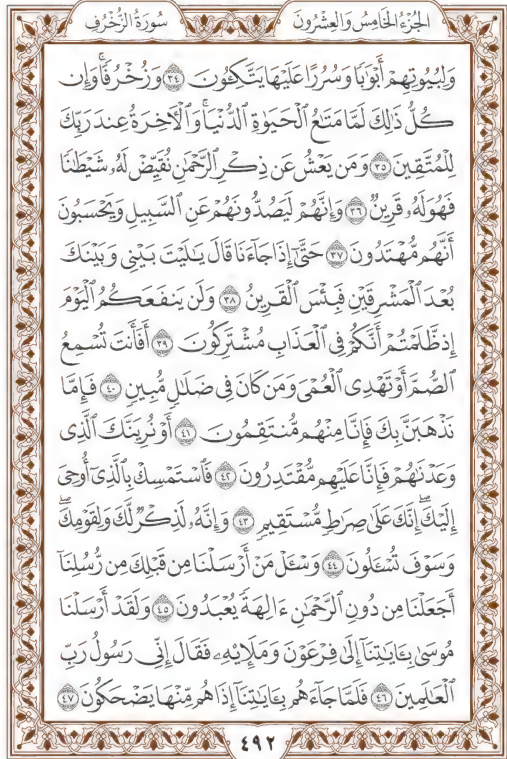 الجُزْءُ الخَامِسُ وَالعِشْرُونَ سُورَةُ الزُّخْرُفِ
وَلِبُيُوتِهِمْ أَبْوَٰبًا وَسُرُرًا عَلَيْهَا يَتَّكِـُٔونَ ٣٤ وَزُخْرُفًا ۚ وَإِن
كُلُّ ذَٰلِكَ لَمَّا مَتَٰعُ ٱلْحَيَوٰةِ ٱلدُّنْيَا ۚ وَٱلْـَٔاخِرَةُ عِندَ رَبِّكَ
لِلْمُتَّقِينَ ٣٥ وَمَن يَعْشُ عَن ذِكْرِ ٱلرَّحْمَٰنِ نُقَيِّضْ لَهُۥ شَيْطَٰنًا
فَهُوَ لَهُۥ قَرِينٌ ٣٦ وَإِنَّهُمْ لَيَصُدُّونَهُمْ عَنِ ٱلسَّبِيلِ وَيَحْسَبُونَ
أَنَّهُم مُّهْتَدُونَ ٣٧ حَتَّىٰٓ إِذَا جَآءَنَا قَالَ يَٰلَيْتَ بَيْنِى وَبَيْنَكَ
بُعْدَ ٱلْمَشْرِقَيْنِ فَبِئْسَ ٱلْقَرِينُ ٣٨ وَلَن يَنفَعَكُمُ ٱلْيَوْمَ
إِذ ظَّلَمْتُمْ أَنَّكُمْ فِى ٱلْعَذَابِ مُشْتَرِكُونَ ٣٩ أَفَأَنتَ تُسْمِعُ
ٱلصُّمَّ أَوْ تَهْدِى ٱلْعُمْىَ وَمَن كَانَ فِى ضَلَٰلٍ مُّبِينٍ ٤٠ فَإِمَّا
نَذْهَبَنَّ بِكَ فَإِنَّا مِنْهُم مُّنتَقِمُونَ ٤١ أَوْ نُرِيَنَّكَ ٱلَّذِى
وَعَدْنَٰهُمْ فَإِنَّا عَلَيْهِم مُّقْتَدِرُونَ ٤٢ فَٱسْتَمْسِكْ بِٱلَّذِىٓ أُوحِىَ
إِلَيْكَ ۖ إِنَّكَ عَلَىٰ صِرَٰطٍ مُّسْتَقِيمٍ ٤٣ وَإِنَّهُۥ لَذِكْرٌ لَّكَ وَلِقَوْمِكَ ۖ
وَسَوْفَ تُسْـَٔلُونَ ٤٤ وَسْـَٔلْ مَنْ أَرْسَلْنَا مِن قَبْلِكَ مِن رُّسُلِنَآ
أَجَعَلْنَا مِن دُونِ ٱلرَّحْمَٰنِ ءَالِهَةً يُعْبَدُونَ ٤٥ وَلَقَدْ أَرْسَلْنَا
مُوسَىٰ بِـَٔايَٰتِنَآ إِلَىٰ فِرْعَوْنَ وَمَلَإِي۟هِۦ فَقَالَ إِنِّى رَسُولُ رَبِّ
ٱلْعَٰلَمِينَ ٤٦ فَلَمَّا جَآءَهُم بِـَٔايَٰتِنَآ إِذَا هُم مِّنْهَا يَضْحَكُونَ ٤٧
٤٩٢